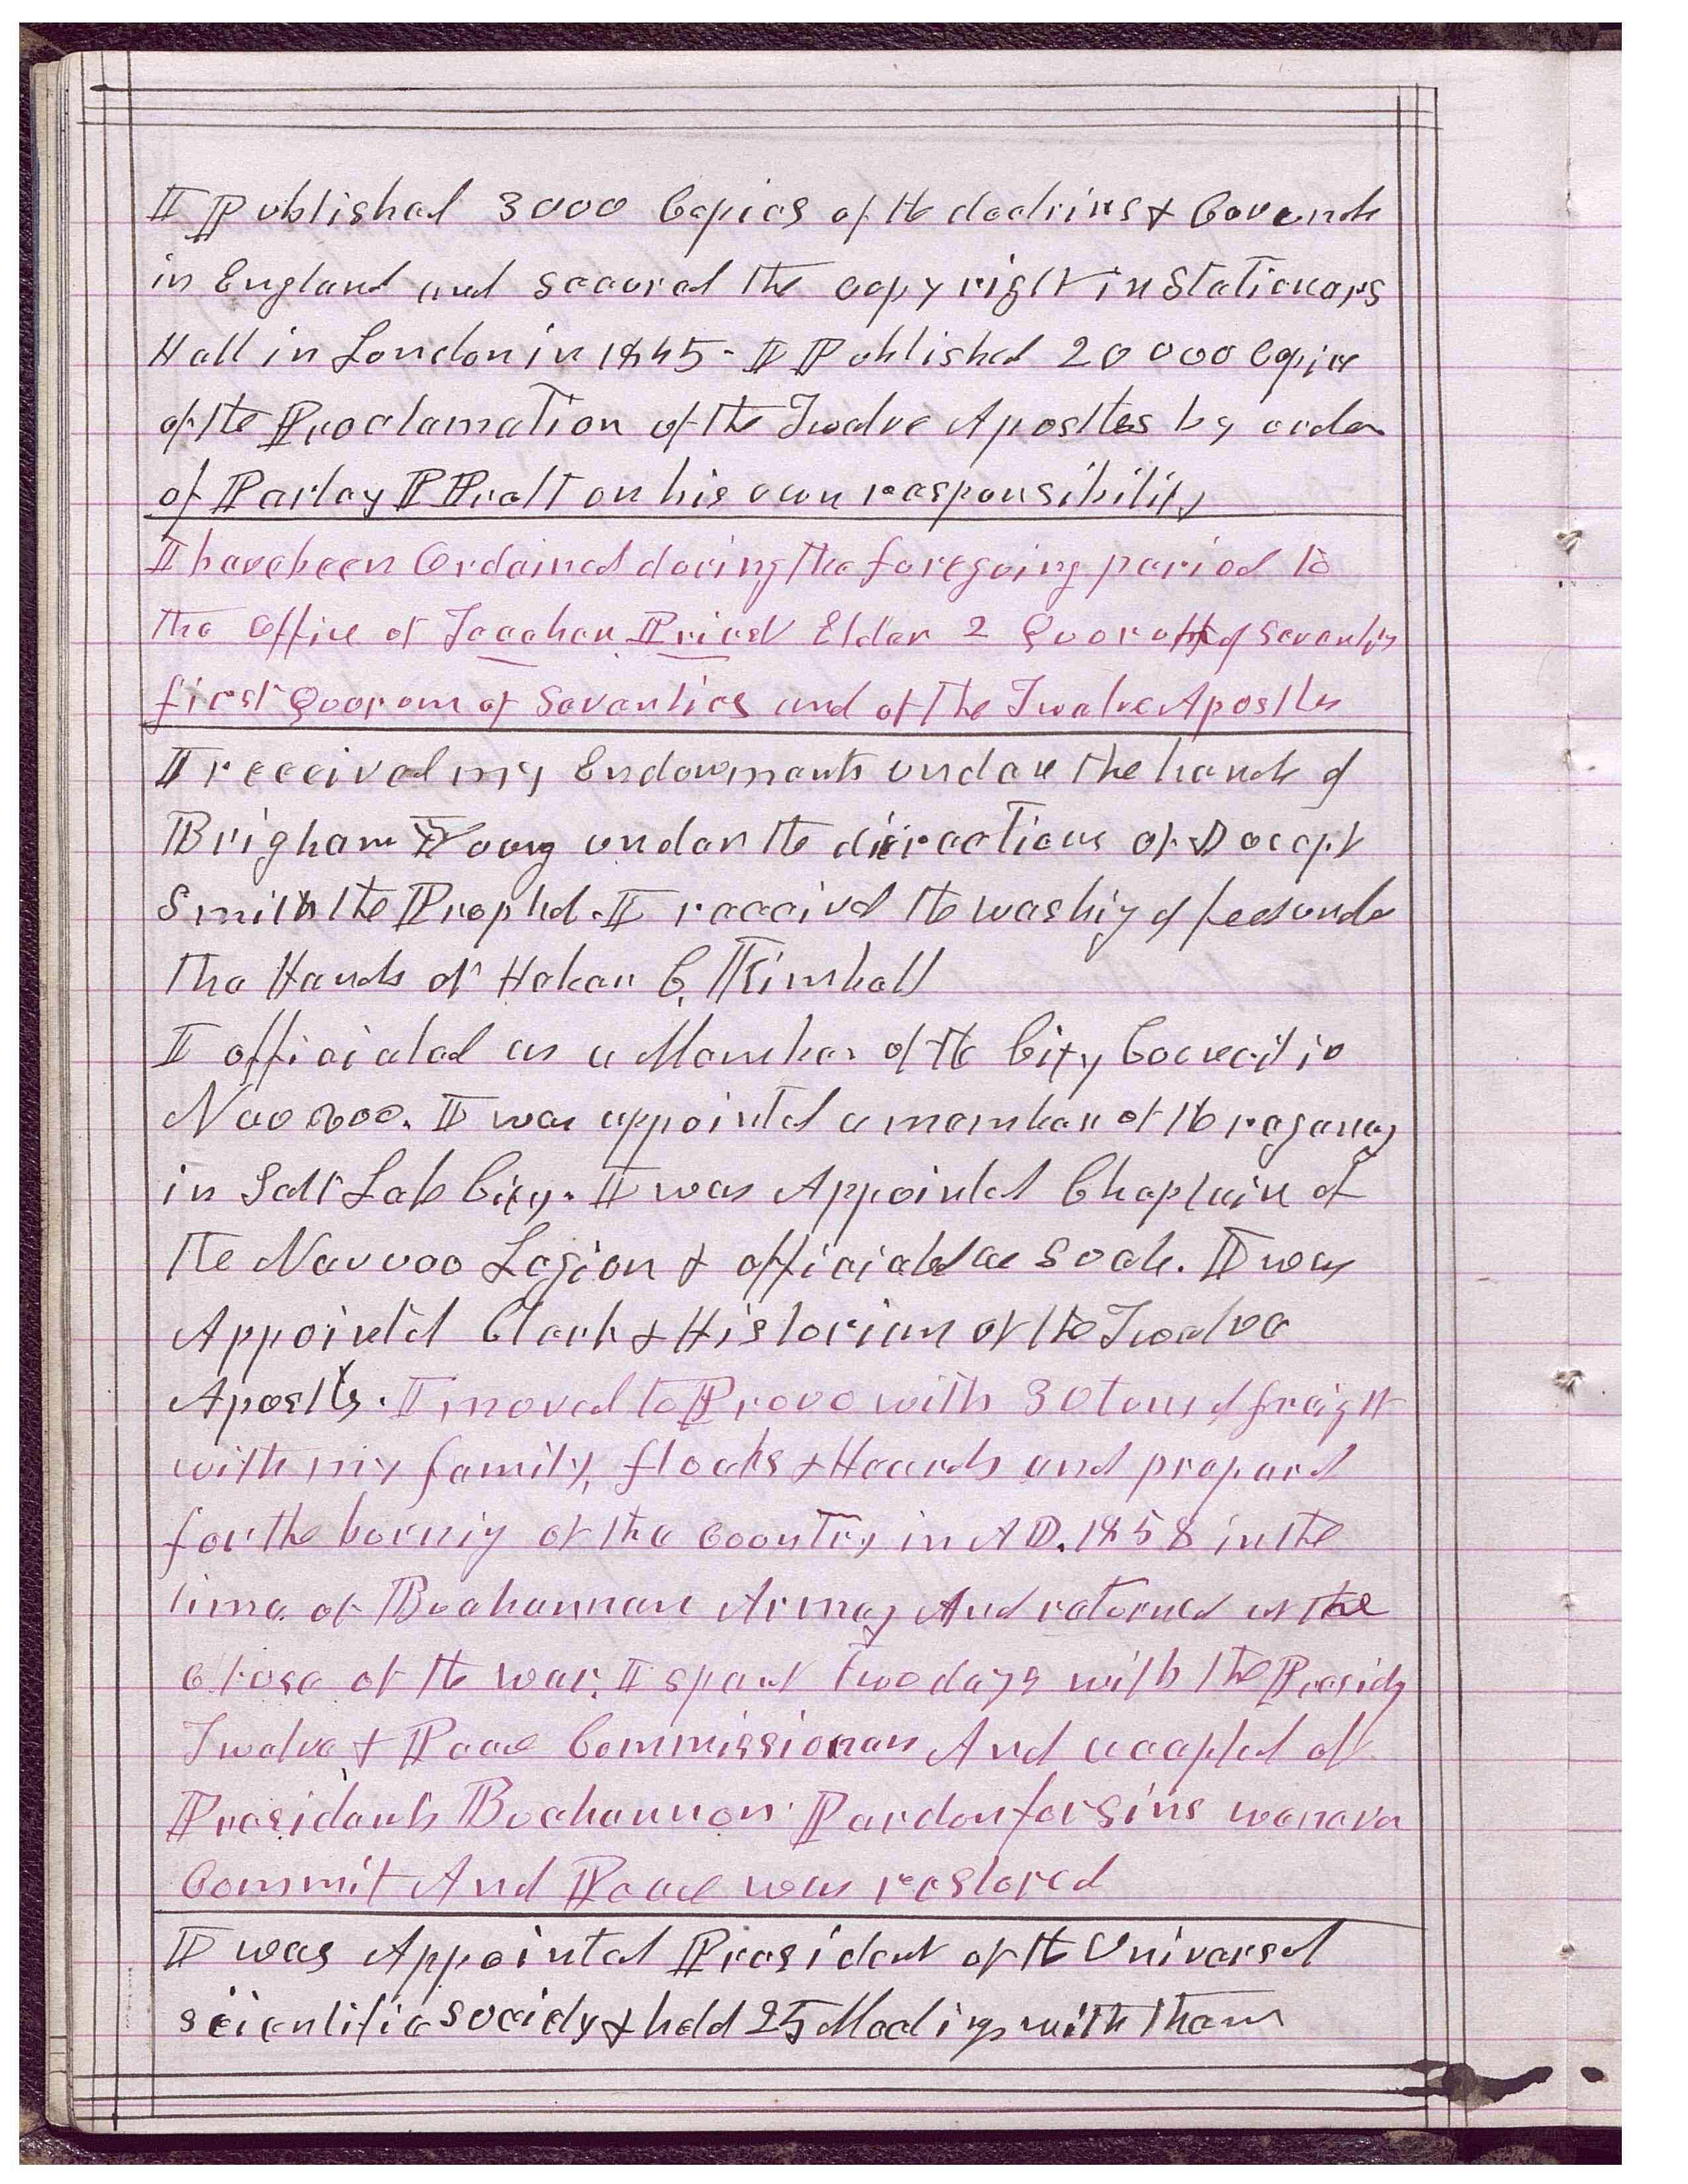 I Published 3000 Copies of the doctrins & Covenants
in England and secured the copy right in Stationers
Hall in London in 1845 - I Published 20000 Copies
of the Proclamation of the Twelve Apostles by order
of Parley P Pratt on his own responsibility
I have been Ordained during the foregoing period to
the Office of Teacher Priest Elder 2 Quorum of Seventies
first Quorum of Seventies and of the Twelve Apostles
I received my Endowments under the hands of
Brigham Young under the directions of Joseph
Smith the Prophet. I received the washing of feet under
the Hands of Heber C. Kimball
I officiated as a Member of the City Council in
Nauvoo. I was appointed a member of the regency
in Salt Lake City. I was Appointed Chaplain of
the Nauvoo Legion & officiated as Such. I was
Appointed Clerk & Historian of the Twelve
Apostles. I moved to Provo with 30 tons of freight
with my family, flocks & Heards and prepared
for the burning of the Country in A D. 1858 in the
time of Buchannan Army And returned at the
close of the war. I spent two days with the Presidency
Twelve & Peace Commissioners And accepted of
Presidents Buchannon Pardon for sins we never
Commit And Peace was restored
I was Appointed President of the Universal
scientific Society & held 25 Meetings with them